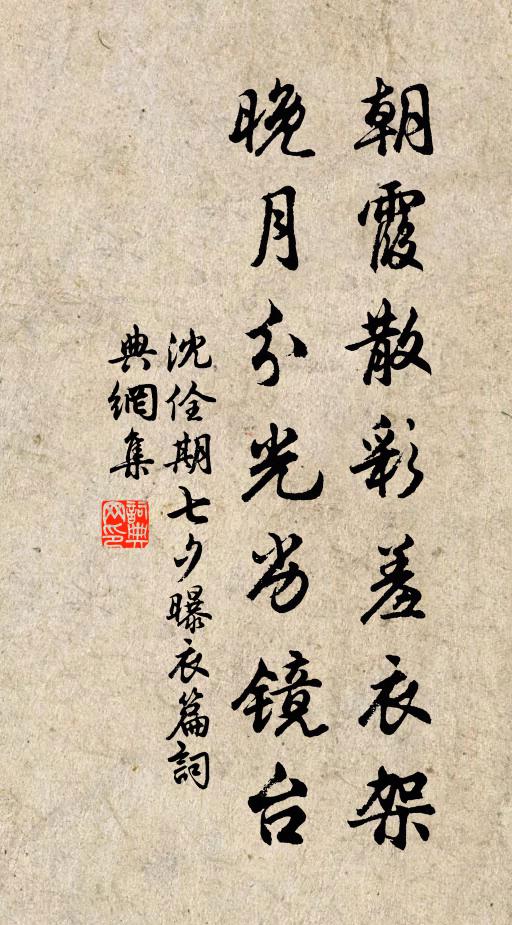 朝霞散彩羞衣架
晚月分光劣镜台
沈佺期七夕曝衣篇詞
典網集
詞典网印